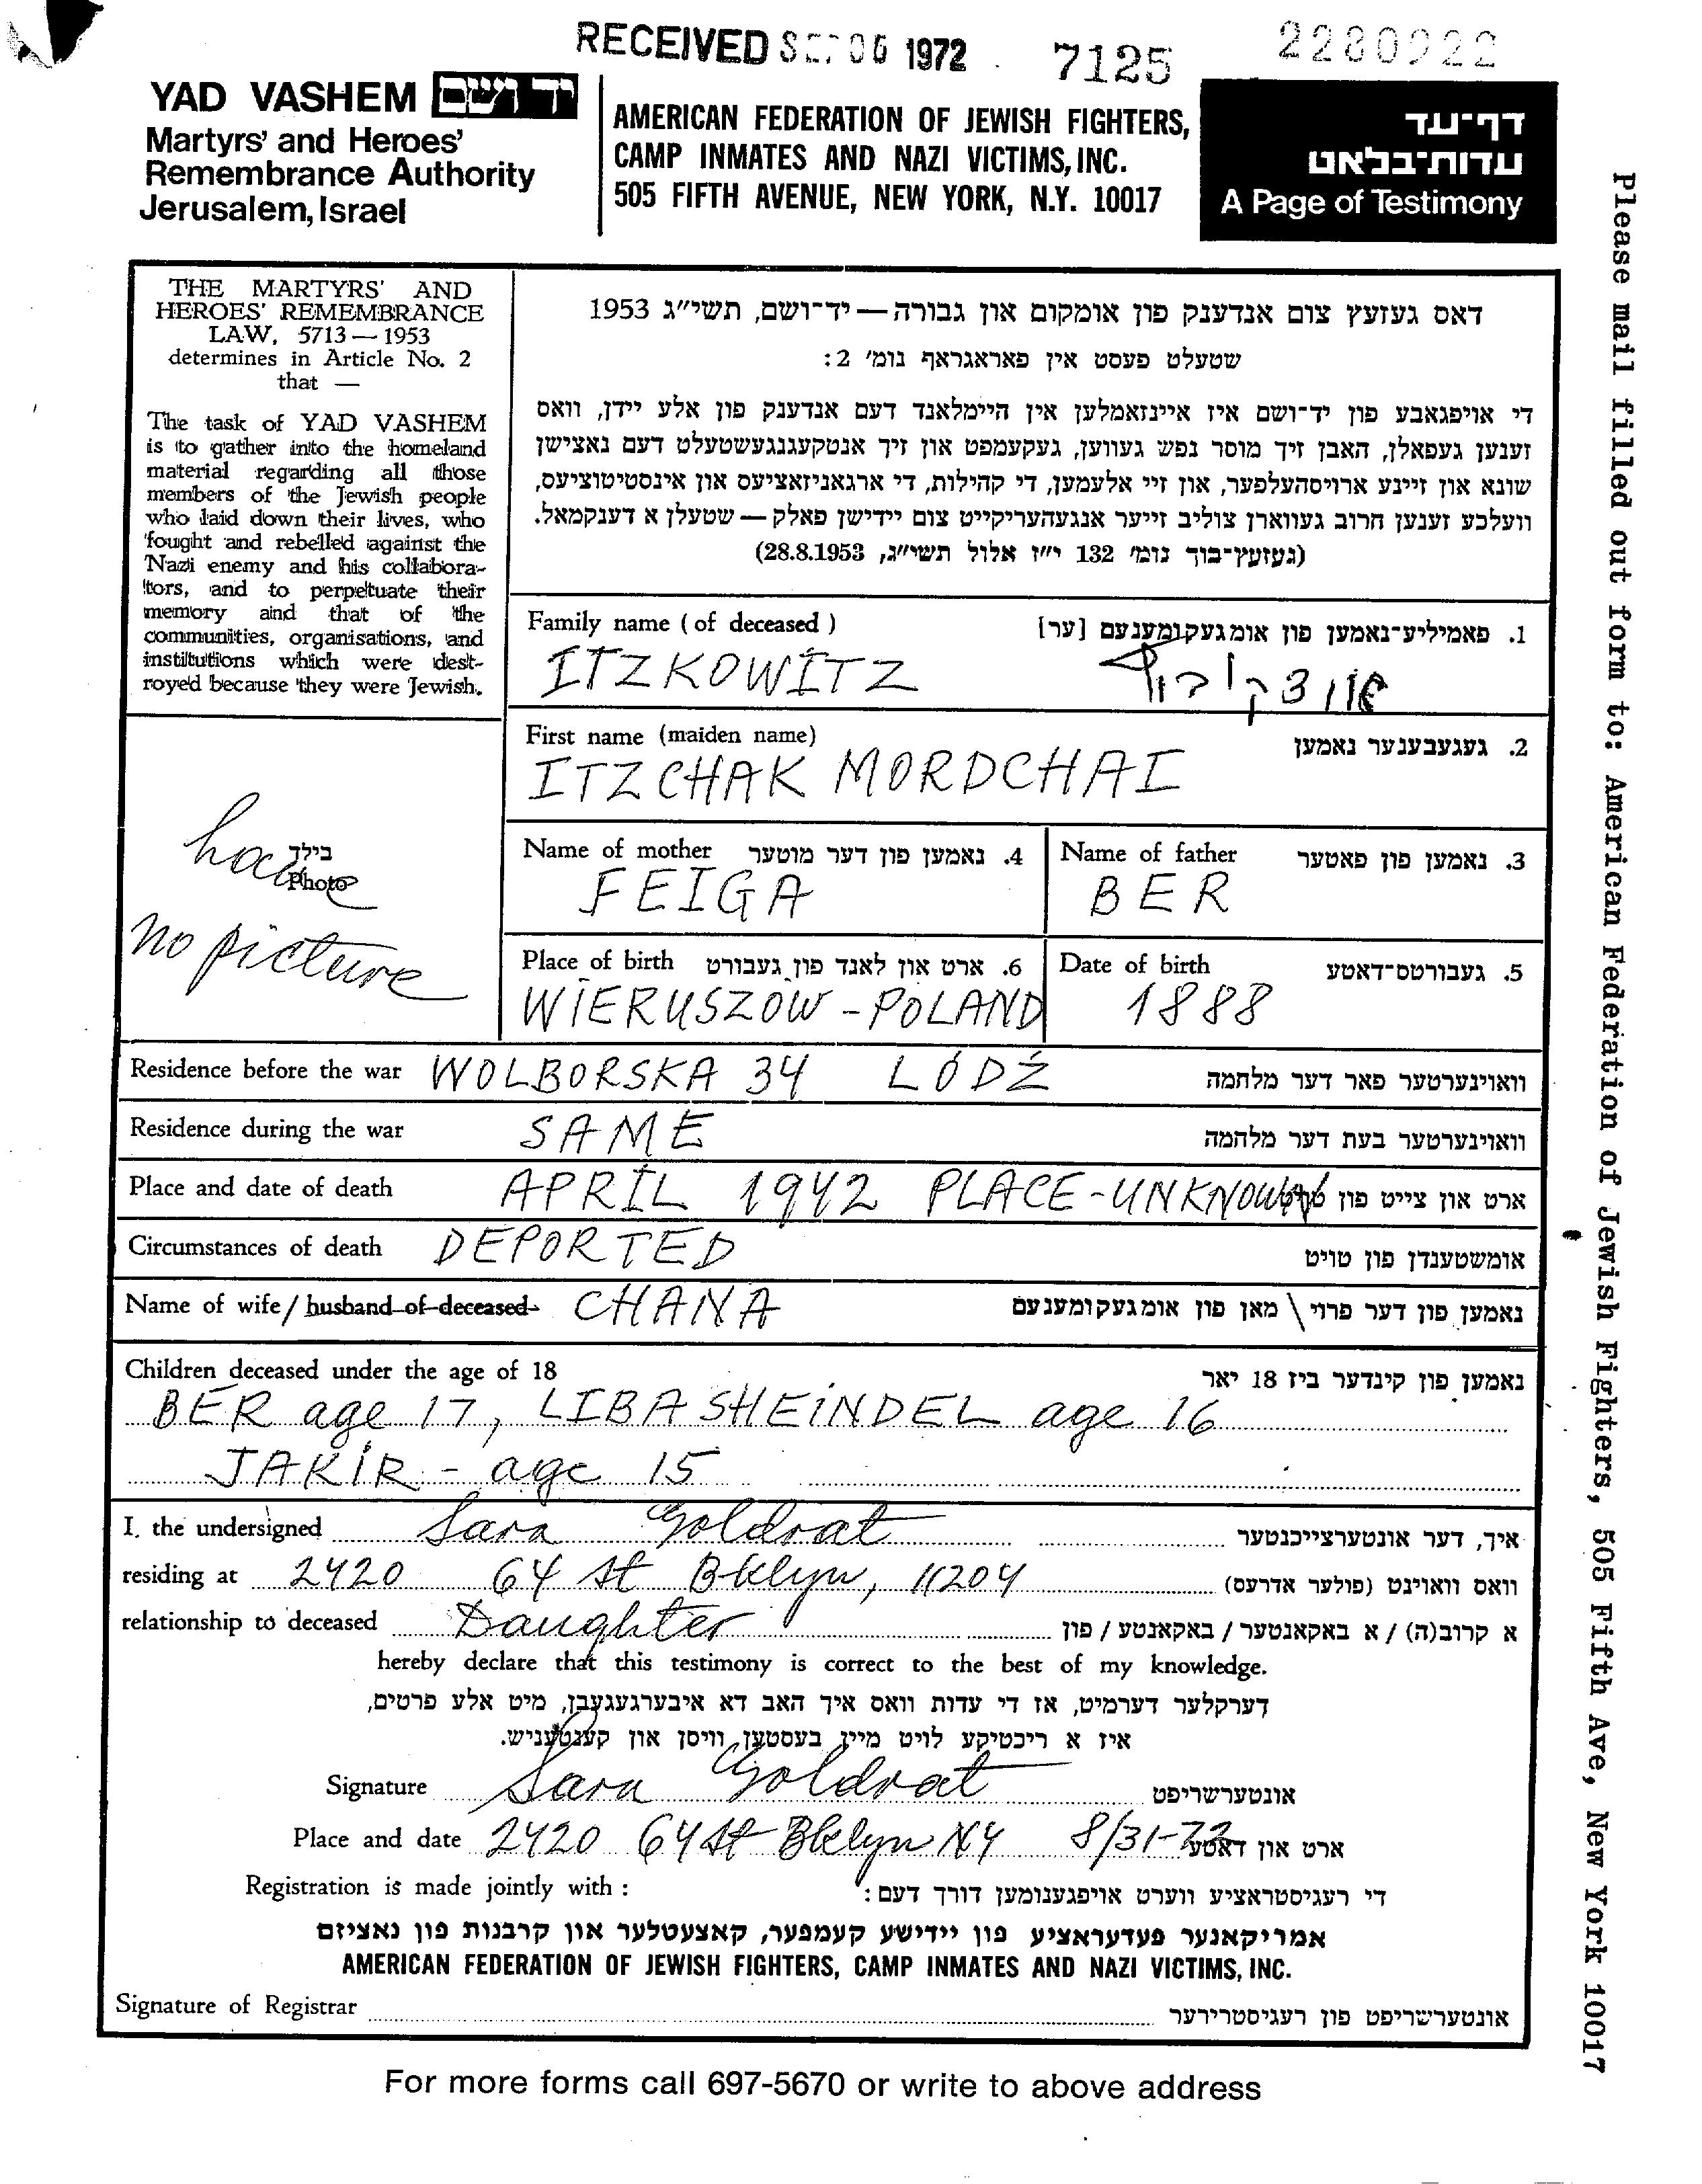 RECEIVED 1972 7125 2280922
YAD VASHEM יד ושם
Martyrs' and Heroes'
Remembrance Authority
Jerusalem, Israel
AMERICAN FEDERATION OF JEWISH FIGHTERS,
CAMP INMATES AND NAZI VICTIMS, INC.
505 FIFTH AVENUE, NEW YORK, N.Y. 10017
דף־עד
עדות־בלאט
A Page of Testimony
Please mail filled out form to: American Federation of Jewish Fighters, 505 Fifth Ave, New York 10017
THE MARTYRS' AND
HEROES' REMEMBRANCE
LAW, 5713 — 1953
determines in Article No. 2
that —
The task of YAD VASHEM
is to gather into the homeland
material regarding all those
members of the Jewish people
who laid down their lives, who
fought and rebelled against the
Nazi enemy and his collabora-
tors, and to perpetuate their
memory and that of the
communities, organisations, and
institutions which were dest-
royed because they were Jewish.
דאס געזעץ צום אנדענק פון אומקום און גבורה — יד־ושם, תשי״ג 1953
שטעלט פעסט אין פאראגראף נומ׳ 2:
די אויפגאבע פון יד־ושם איז איינזאמלען אין היימלאנד דעם אנדענק פון אלע יידן, וואס
זענען געפאלן, האבן זיך מוסר נפש געווען, געקעמפט און זיך אנטקעגנגעשטעלט דעם נאצישן
שונא און זיינע ארויסהעלפער, און זיי אלעמען, די קהילות, די ארגאניזאציעס און אינסטיטוציעס,
וועלכע זענען חרוב געווארן צוליב זייער אנגעהעריקייט צום יידישן פאלק — שטעלן א דענקמאל.
(געזעץ־בוך נומ׳ 132 י״ז אלול תשי״ג, 28.8.1953)
Family name (of deceased) 1. פאמיליע־נאמען פון אומגעקומענעם [ער]
ITZKOWITZ
First name (maiden name) 2. געגעבענער נאמען
ITZCHAK MORDCHAI
בילד
Photo
no picture
Name of mother 4. נאמען פון דער מוטער
FEIGA
Name of father 3. נאמען פון פאטער
BER
Place of birth 6. ארט און לאנד פון געבורט
WIERUSZÓW - POLAND
Date of birth 5. געבורטס־דאטע
1888
Residence before the war WOLBORSKA 34 ŁÓDŹ וואוינערטער פאר דער מלחמה
Residence during the war SAME וואוינערטער בעת דער מלחמה
Place and date of death APRIL 1942 PLACE-UNKNOWN ארט און צייט פון טויט
Circumstances of death DEPORTED אומשטענדן פון טויט
Name of wife / husband of deceased CHANA נאמען פון דער פרוי \ מאן פון אומגעקומענעם
Children deceased under the age of 18 נאמען פון קינדער ביז 18 יאר
BER age 17, LIBA SHEINDEL age 16
JAKIR - age 15
I, the undersigned Sara Goldrat איך, דער אונטערצייכנטער
residing at 2420 64 St Bklyn, 11204 וואס וואוינט (פולער אדרעס)
relationship to deceased Daughter א קרוב(ה) / א באקאנטער / באקאנטע / פון
hereby declare that this testimony is correct to the best of my knowledge.
דערקלער דערמיט, אז די עדות וואס איך האב דא איבערגעגעבן, מיט אלע פרטים,
איז א ריכטיקע לויט מיין בעסטען וויסן און קענטעניש.
Signature Sara Goldrat אונטערשריפט
Place and date 2420 64 St Bklyn NY 8/31-72 ארט און דאטע
Registration is made jointly with : די רעגיסטראציע ווערט אויפגענומען דורך דעם:
אמריקאנער פעדעראציע פון יידישע קעמפער, קאצעטלער און קרבנות פון נאציזם
AMERICAN FEDERATION OF JEWISH FIGHTERS, CAMP INMATES AND NAZI VICTIMS, INC.
Signature of Registrar אונטערשריפט פון רעגיסטרירער
For more forms call 697-5670 or write to above address